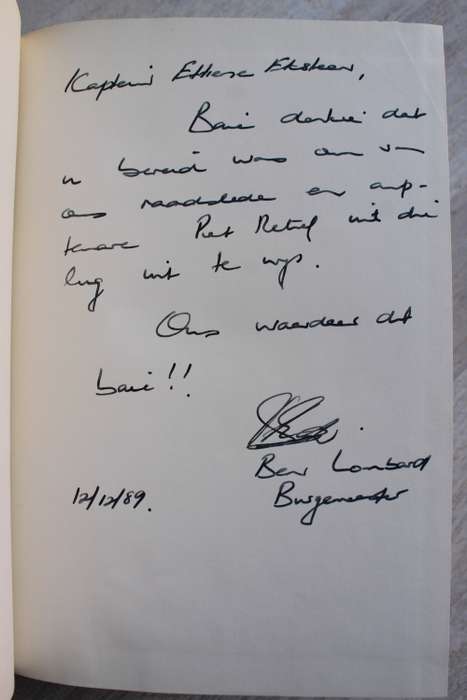 Kaptein Ettiene Eksteen,
Baie dankie dat
u bereid was om vir
ons raadslede en amp-
tenare Piet Retief uit die
lug uit te wys.
Ons waardeer dit
baie!!
Ben Lombard
12/12/89. Burgemeester